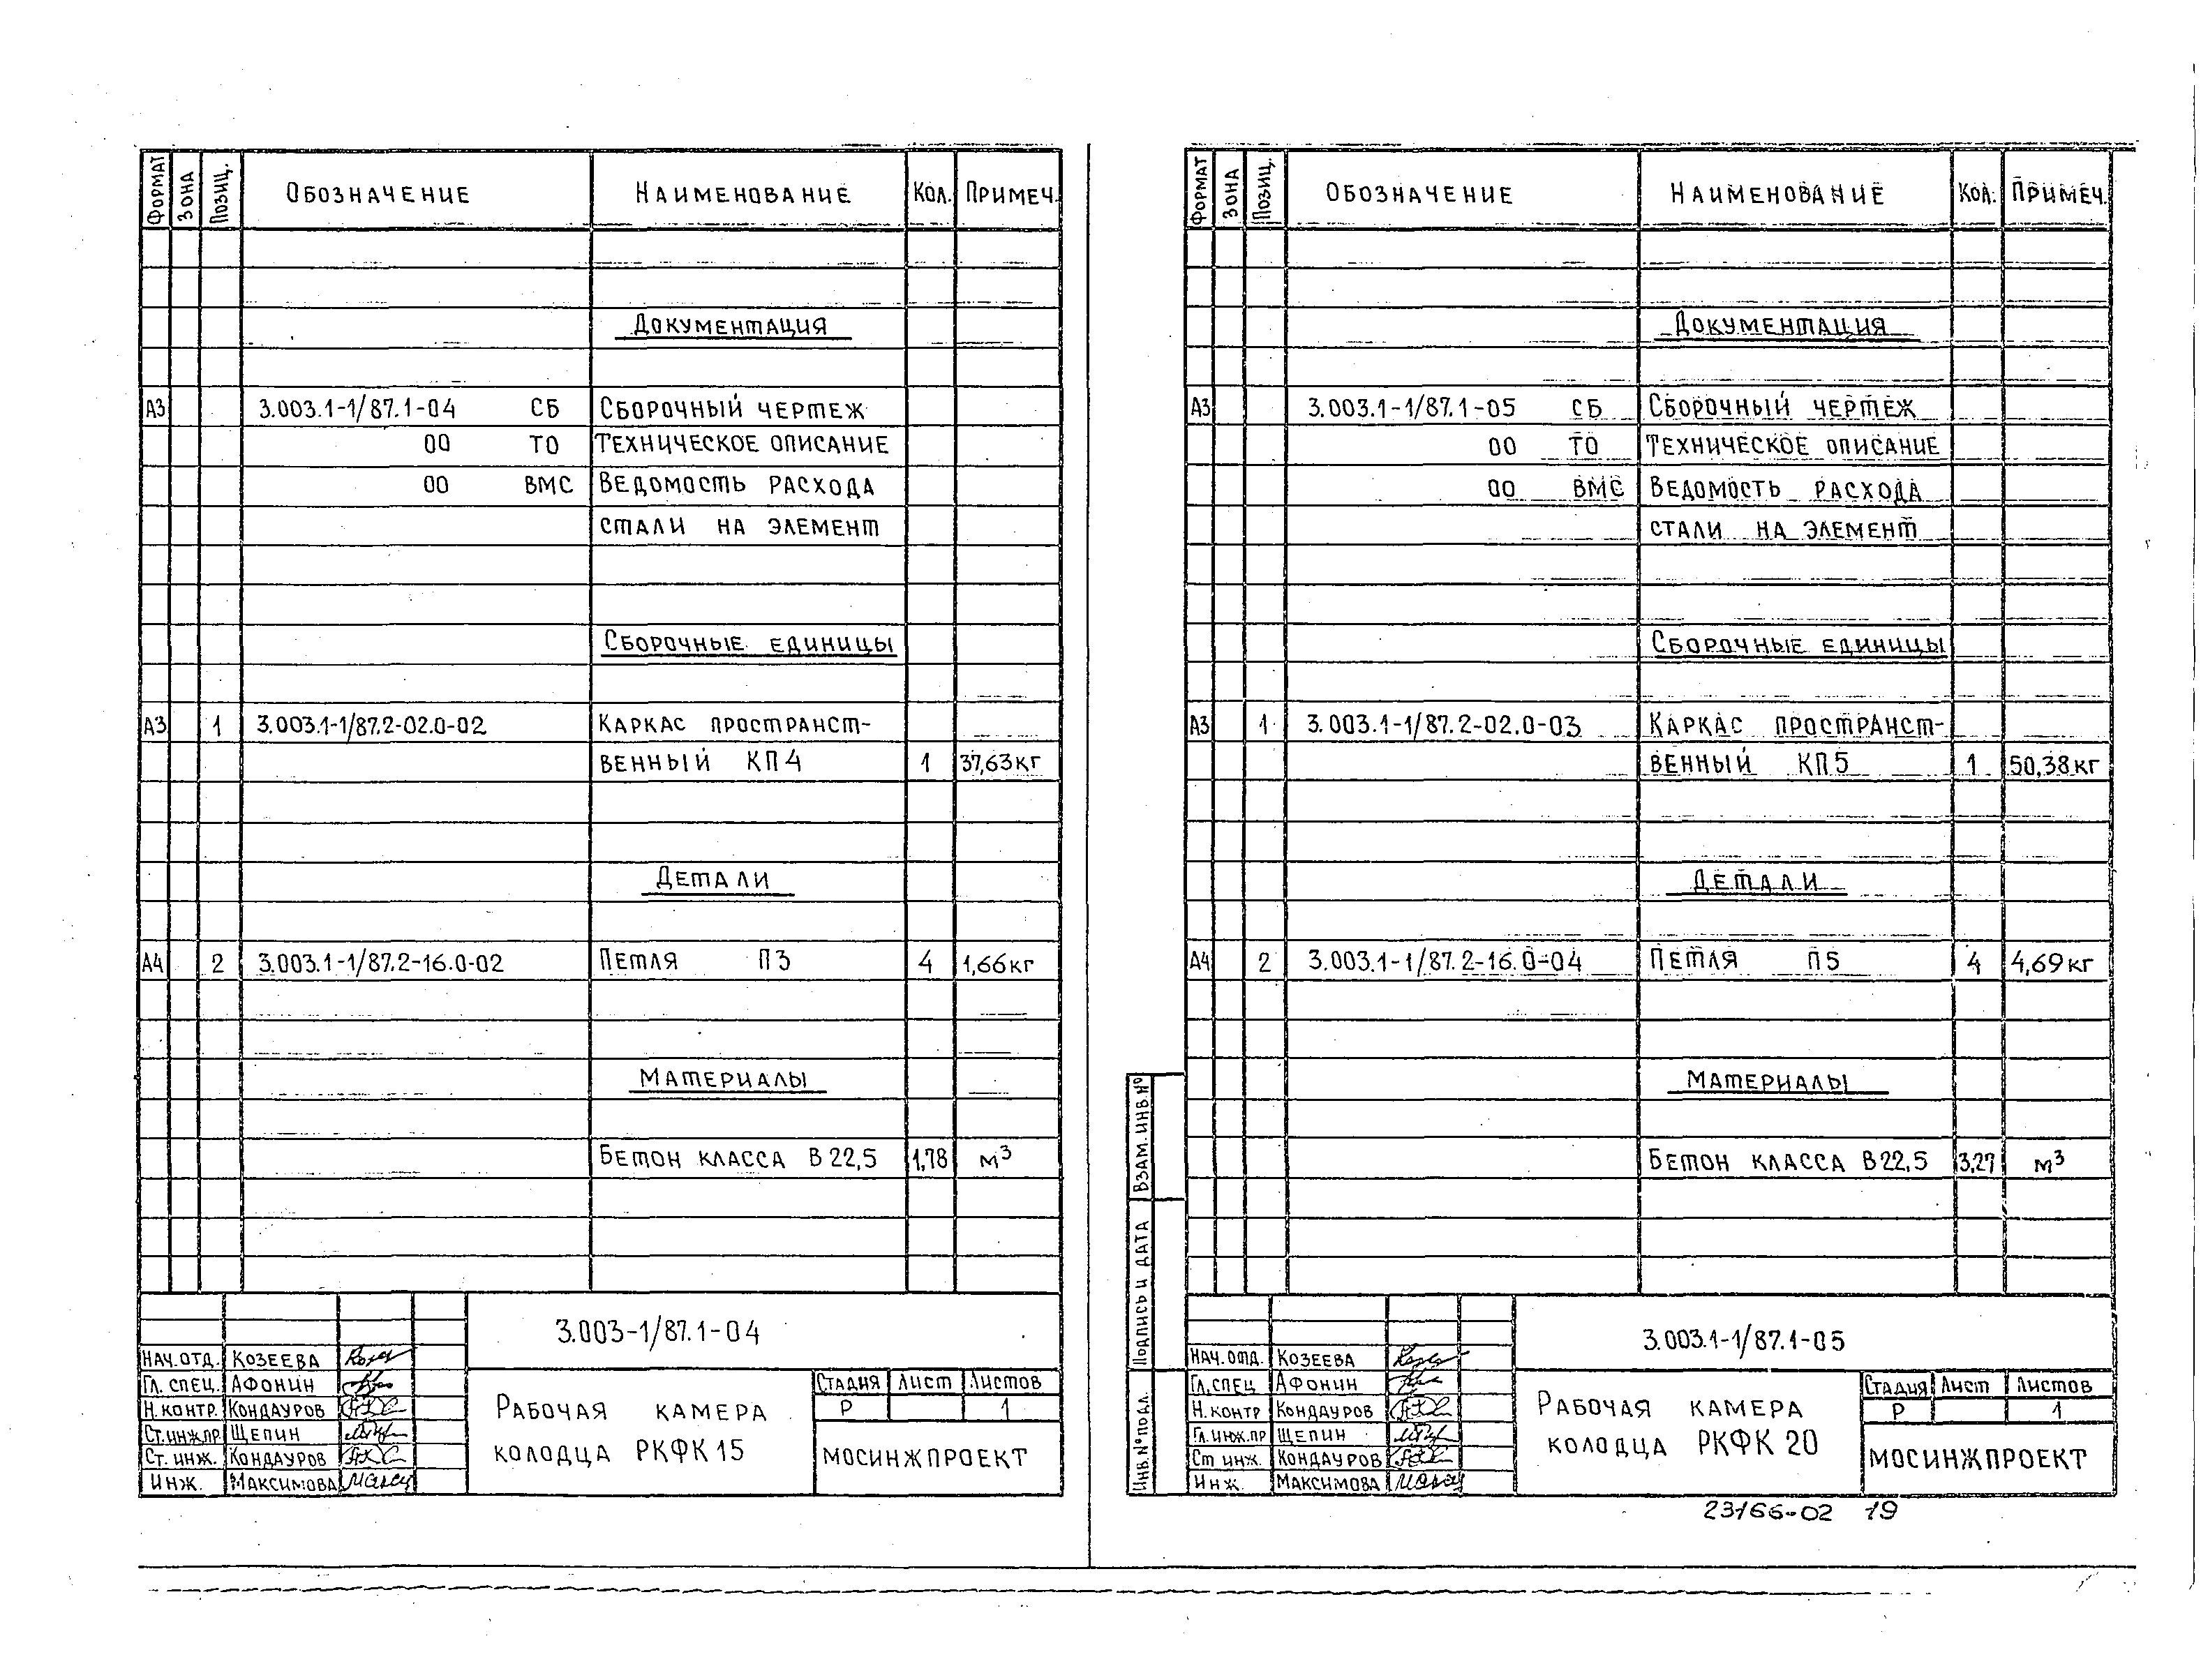 ФОРМАТ ЗОНА ПОЗИЦ. ОБОЗНАЧЕНИЕ НАИМЕНОВАНИЕ КОЛ. ПРИМЕЧ.
ДОКУМЕНТАЦИЯ
А3 3.003.1-1/87.1-04 СБ СБОРОЧНЫЙ ЧЕРТЕЖ
00 ТО ТЕХНИЧЕСКОЕ ОПИСАНИЕ
00 ВМС ВЕДОМОСТЬ РАСХОДА
СТАЛИ НА ЭЛЕМЕНТ
СБОРОЧНЫЕ ЕДИНИЦЫ
А3 1 3.003.1-1/87.2-02.0-02 КАРКАС ПРОСТРАНСТ-
ВЕННЫЙ КП4 1 37,63кг
ДЕТАЛИ
А4 2 3.003.1-1/87.2-16.0-02 ПЕТЛЯ П3 4 1,66кг
МАТЕРИАЛЫ
БЕТОН КЛАССА В 22,5 1,78 м³
3.003-1/87.1-04
НАЧ.ОТД. КОЗЕЕВА
ГЛ. СПЕЦ. АФОНИН
Н.КОНТР. КОНДАУРОВ
СТ.ИНЖ.ПР. ЩЕПИН
СТ. ИНЖ. КОНДАУРОВ
ИНЖ. МАКСИМОВА
РАБОЧАЯ КАМЕРА
КОЛОДЦА РКФК 15
СТАДИЯ ЛИСТ ЛИСТОВ
Р 1
МОСИНЖПРОЕКТ
ФОРМАТ ЗОНА ПОЗИЦ. ОБОЗНАЧЕНИЕ НАИМЕНОВАНИЕ КОЛ. ПРИМЕЧ.
ДОКУМЕНТАЦИЯ
А3 3.003.1-1/87.1-05 СБ СБОРОЧНЫЙ ЧЕРТЕЖ
00 ТО ТЕХНИЧЕСКОЕ ОПИСАНИЕ
00 ВМС ВЕДОМОСТЬ РАСХОДА
СТАЛИ НА ЭЛЕМЕНТ
СБОРОЧНЫЕ ЕДИНИЦЫ
А3 1 3.003.1-1/87.2-02.0-03 КАРКАС ПРОСТРАНСТ-
ВЕННЫЙ КП5 1 50,38кг
ДЕТАЛИ
А4 2 3.003.1-1/87.2-16.0-04 ПЕТЛЯ П5 4 4,69кг
МАТЕРИАЛЫ
БЕТОН КЛАССА В22,5 3,27 м³
ВЗАМ.ИНВ.№
ПОДПИСЬ И ДАТА
ИНВ.№ПОДЛ.
3.003.1-1/87.1-05
НАЧ.ОТД. КОЗЕЕВА
ГЛ.СПЕЦ АФОНИН
Н.КОНТР КОНДАУРОВ
ГЛ.ИНЖ.ПР ЩЕПИН
СТ ИНЖ. КОНДАУРОВ
ИНЖ. МАКСИМОВА
РАБОЧАЯ КАМЕРА
КОЛОДЦА РКФК 20
СТАДИЯ ЛИСТ ЛИСТОВ
Р 1
МОСИНЖПРОЕКТ
23166-02 19